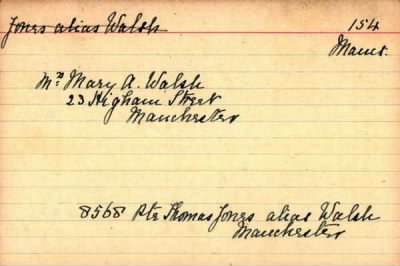 Jones alias Walsh
154
Manr.
Mrs Mary A. Walsh
23 Higham Street
Manchester
8568 Pte Thomas Jones alias Walsh
Manchesters